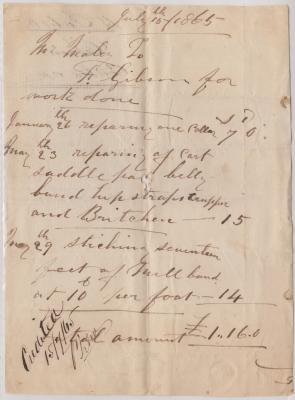 July 15th / 1865
Mr To
F. Gibson for
work done
s d
January 26th reparing one Collar 7 0
May 23th reparing of Cart
saddle pair belly
band hip straps
and Britchen — 15
May 29th stiching seventeen
feet of Mill band
at 10d per foot — 14
amount £1.16.0
Credited
15/7/65